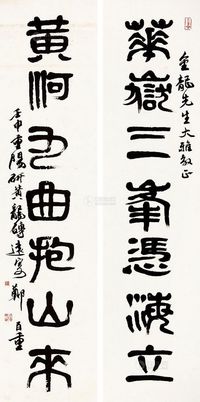 金龍先生大雅教正
華嶽三峯憑海立
黃河九曲抱山來
壬申重陽研黃龍磚遠寧鄭百重